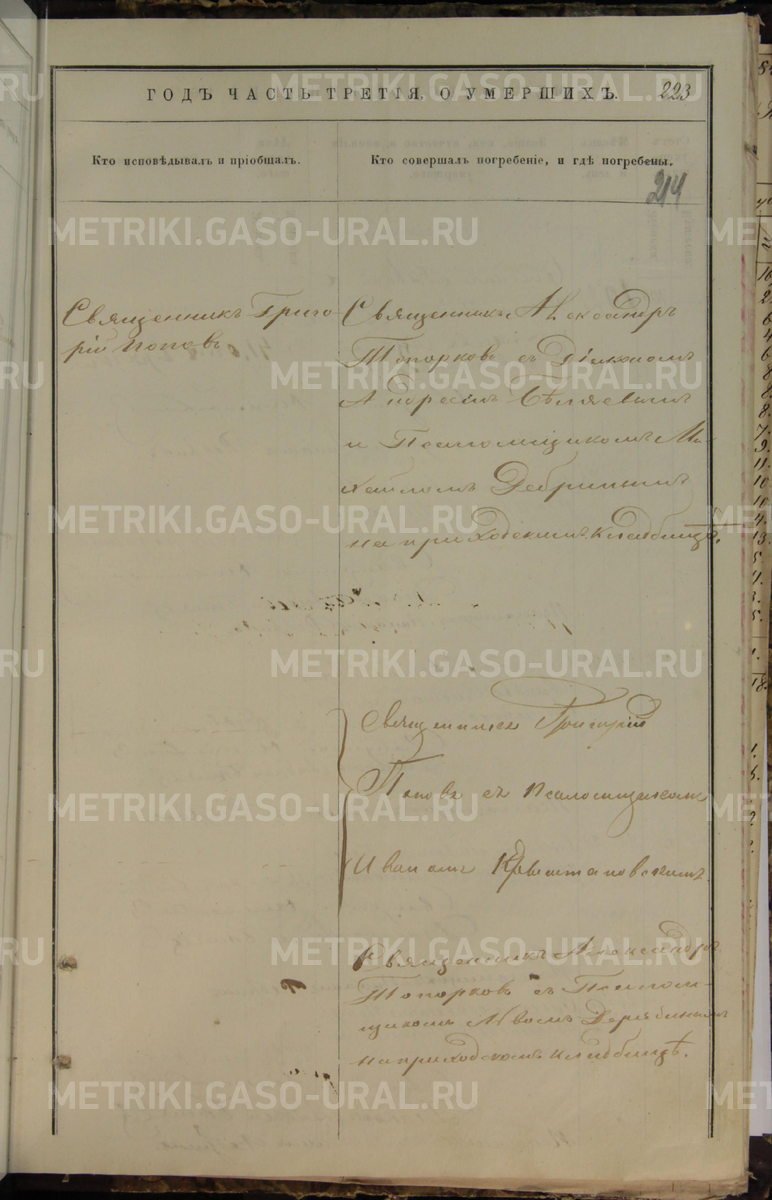 ГОДЪ ЧАСТЬ ТРЕТІЯ, О УМЕРШИХЪ.
223
Кто исповѣдывалъ и пріобщалъ.
Кто совершалъ погребеніе, и гдѣ погребены.
214
Священникъ Григо-
рій Поповъ
Священникъ Александръ
Топорковъ съ Діакономъ
Андреемъ Бѣляевымъ
и Псаломщикомъ Ми-
хаиломъ
на приходскомъ кладбищѣ.
Священникъ Григорій
Поповъ съ Псаломщикомъ
Иваномъ
Священникъ Александръ
Топорковъ съ Псалом-
щикомъ Дерябинымъ
на приходскомъ кладбищѣ.
METRIKI.GASO-URAL.RU